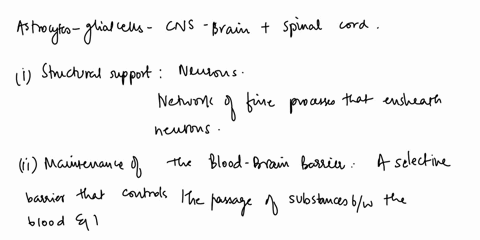 Astrocytes - glial cells - CNS - Brain + spinal cord.
(i) Structural support: Neurons.
Network of fine processes that ensheath
neurons.
(ii) Maintenance of the Blood-Brain Barrier: A selective
barrier that controls the passage of substances b/w the
blood &